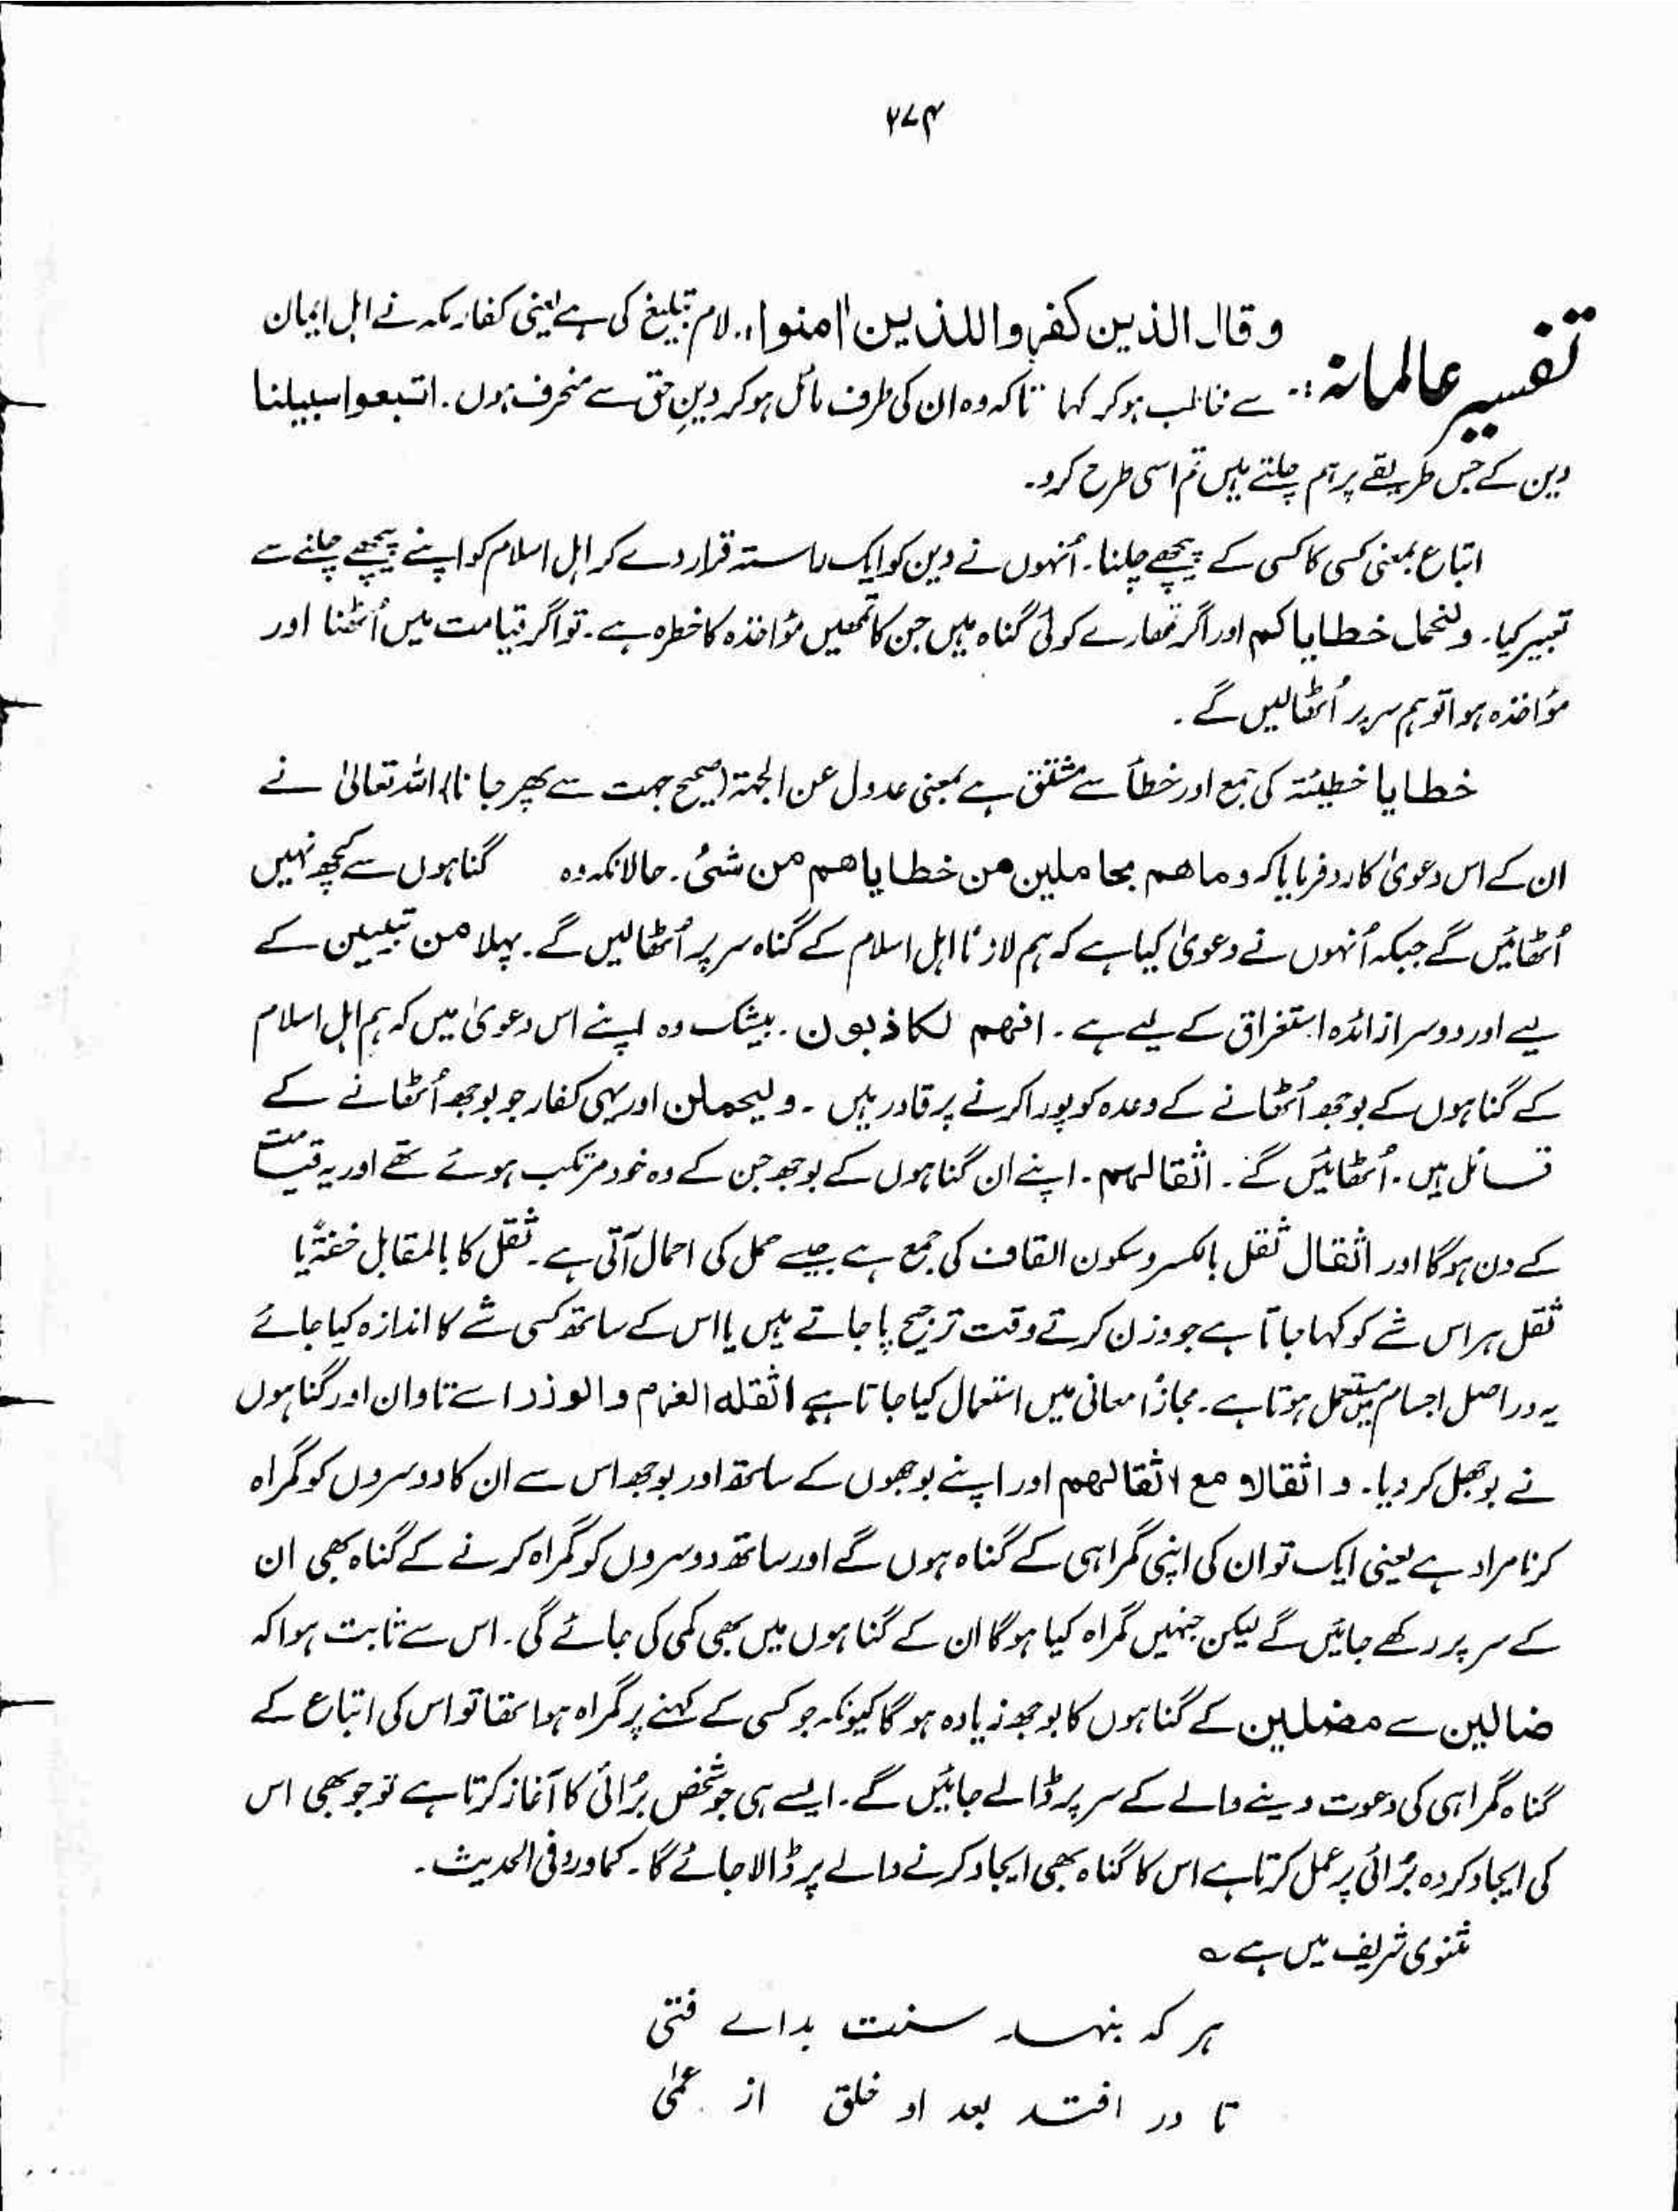 ۲۷۴
تفسیر عالمانہ :۔ وقال الذین کفروا للذین اٰمنوا،، لام تبلیغ کی ہے یعنی کفار مکہ نے اہل ایمان
سے مخاطب ہو کر کہا تاکہ وہ ان کی طرف مائل ہو کر دینِ حق سے منحرف ہوں۔ اتبعوا سبیلنا
دین کے جس طریقے پر ہم چلتے ہیں تم اسی طرح کرو۔
اتباع بمعنی کسی کا کسی کے پیچھے چلنا۔ اُنہوں نے دین کو ایک راستہ قرار دے کر اہل اسلام کو اپنے پیچھے چلنے سے
تعبیر کیا۔ ولنحمل خطایاکم اور اگر تمھارے کوئی گناہ ہیں جن کا تمھیں مؤاخذہ کا خطرہ ہے۔ تو اگر قیامت میں اُٹھنا اور
مؤاخذہ ہوا تو ہم سر پر اُٹھالیں گے۔
خطایا خطیئۃ کی جمع اور خطأ سے مشتق ہے بمعنی عدول عن الجہۃ (صحیح جہت سے پھر جانا) اللہ تعالیٰ نے
ان کے اس دعویٰ کا رد فرمایا کہ وما ھم بحاملین من خطایاھم من شئ۔ حالانکہ وہ گناہوں سے کچھ نہیں
اُٹھائیں گے جبکہ اُنہوں نے دعویٰ کیا ہے کہ ہم لازمًا اہل اسلام کے گناہ سر پر اُٹھالیں گے۔ پہلا من تبیین کے
لیے اور دوسرا زائدہ استغراق کے لیے ہے۔ انھم لکاذبون۔ بیشک وہ اپنے اس دعویٰ میں کہ ہم اہل اسلام
کے گناہوں کے بوجھ اُٹھانے کے وعدہ کو پورا کرنے پر قادر ہیں۔ ولیحملن اور یہی کفار جو بوجھ اُٹھانے کے
قائل ہیں۔ اُٹھائیں گے۔ اثقالہم۔ اپنے ان گناہوں کے بوجھ جن کے وہ خود مرتکب ہوئے تھے اور یہ قیامت
کے دن ہوگا اور اثقال ثقل بالکسر وسکون القاف کی جمع ہے جیسے حمل کی احمال آتی ہے۔ ثقل کا بالمقابل خفۃ یا
ثقل ہر اس شے کو کہا جاتا ہے جو وزن کرتے وقت ترجیح پا جاتے ہیں یا اس کے ساتھ کسی شے کا اندازہ کیا جائے
یہ دراصل اجسام میں مستعمل ہوتا ہے۔ مجازًا معانی میں استعمال کیا جاتا ہے اثقلہ الغرم والوزر اسے تاوان اور گناہوں
نے بوجھل کر دیا۔ و اثقالا مع اثقالہم اور اپنے بوجھوں کے ساتھ اور بوجھ اس سے ان کا دوسروں کو گمراہ
کرنا مراد ہے یعنی ایک تو ان کی اپنی گمراہی کے گناہ ہوں گے اور ساتھ دوسروں کو گمراہ کرنے کے گناہ بھی ان
کے سر پر رکھے جائیں گے لیکن جنہیں گمراہ کیا ہوگا ان کے گناہوں میں بھی کمی کی جائے گی۔ اس سے ثابت ہوا کہ
ضالین سے مضلین کے گناہوں کا بوجھ زیادہ ہوگا کیونکہ جو کسی کے کہنے پر گمراہ ہوا تھا تو اس کی اتباع کے
گناہ گمراہی کی دعوت دینے والے کے سر پر ڈالے جائیں گے۔ ایسے ہی جو شخص بُرائی کا آغاز کرتا ہے تو جو بھی اس
کی ایجاد کردہ بُرائی پر عمل کرتا ہے اس کا گناہ بھی ایجاد کرنے والے پر ڈالا جائے گا۔ کما ورد فی الحدیث۔
مثنوی شریف میں ہے ؎
ہر کہ بنہد سنت بد اے فتیٰ
تا در افتد بعد او خلق از عمیٰ